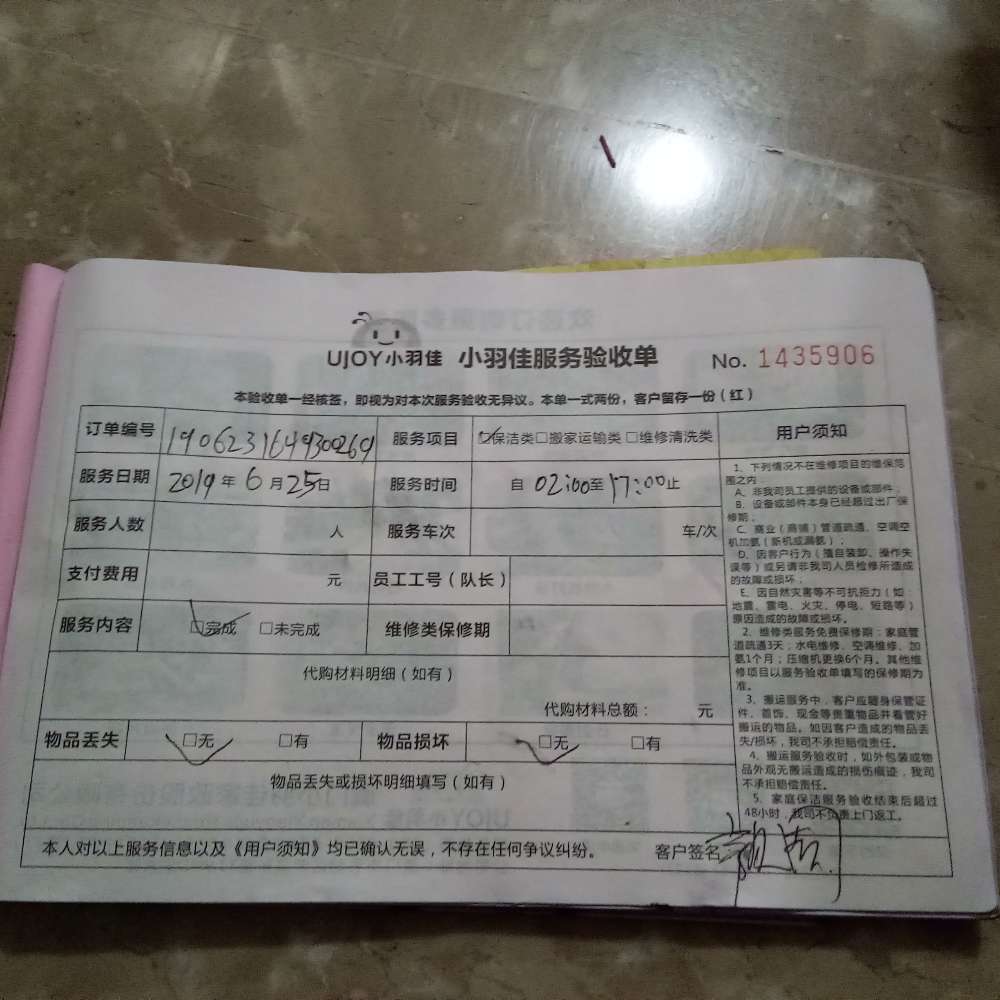 UJOY小羽佳 小羽佳服务验收单 No. 1435906
本验收单一经核签，即视为对本次服务验收无异议。本单一式两份，客户留存一份（红）
订单编号 190623164930026 服务项目 ☑保洁类□搬家运输类 □维修清洗类 用户须知
服务日期 2019 年 6 月 25 日 服务时间 自 02:00 至 17:00 止
服务人数 人 服务车次 车/次
支付费用 元 员工工号（队长）
服务内容 ☑完成 □未完成 维修类保修期
代购材料明细（如有）
代购材料总额： 元
物品丢失 ☑无 □有 物品损坏 ☑无 □有
物品丢失或损坏明细填写（如有）
本人对以上服务信息以及《用户须知》均已确认无误，不存在任何争议纠纷。 客户签名
1、下列情况不在维修项目的维保范
围之内：
A、非我司员工提供的设备或部件；
B、设备或部件本身已经超过出厂保
修期；
C、商业（商铺）管道疏通、空调空
机加氨（新机或漏氨）；
D、因客户行为（擅自装卸、操作失
误等）或另请非我司人员检修所造成
的故障或损坏；
E、因自然灾害等不可抗拒力（如：
地震、雷电、火灾、停电、短路等）
原因造成的故障或损坏。
2、维修类服务免费保修期：家庭管
道疏通3天；水电维修、空调维修、加
氨1个月；压缩机更换6个月。其他维
修项目以服务验收单填写的保修期为
准。
3、搬运服务中，客户应随身保管证
件、首饰、现金等贵重物品并看管好
搬运的物品。如因客户造成的物品丢
失/损坏，我司不承担赔偿责任。
4、搬运服务验收时，如外包装或物
品外观无搬运造成的损伤痕迹，我司
不承担赔偿责任。
5、家庭保洁服务验收结束后超过
48小时，我司不负责上门返工。